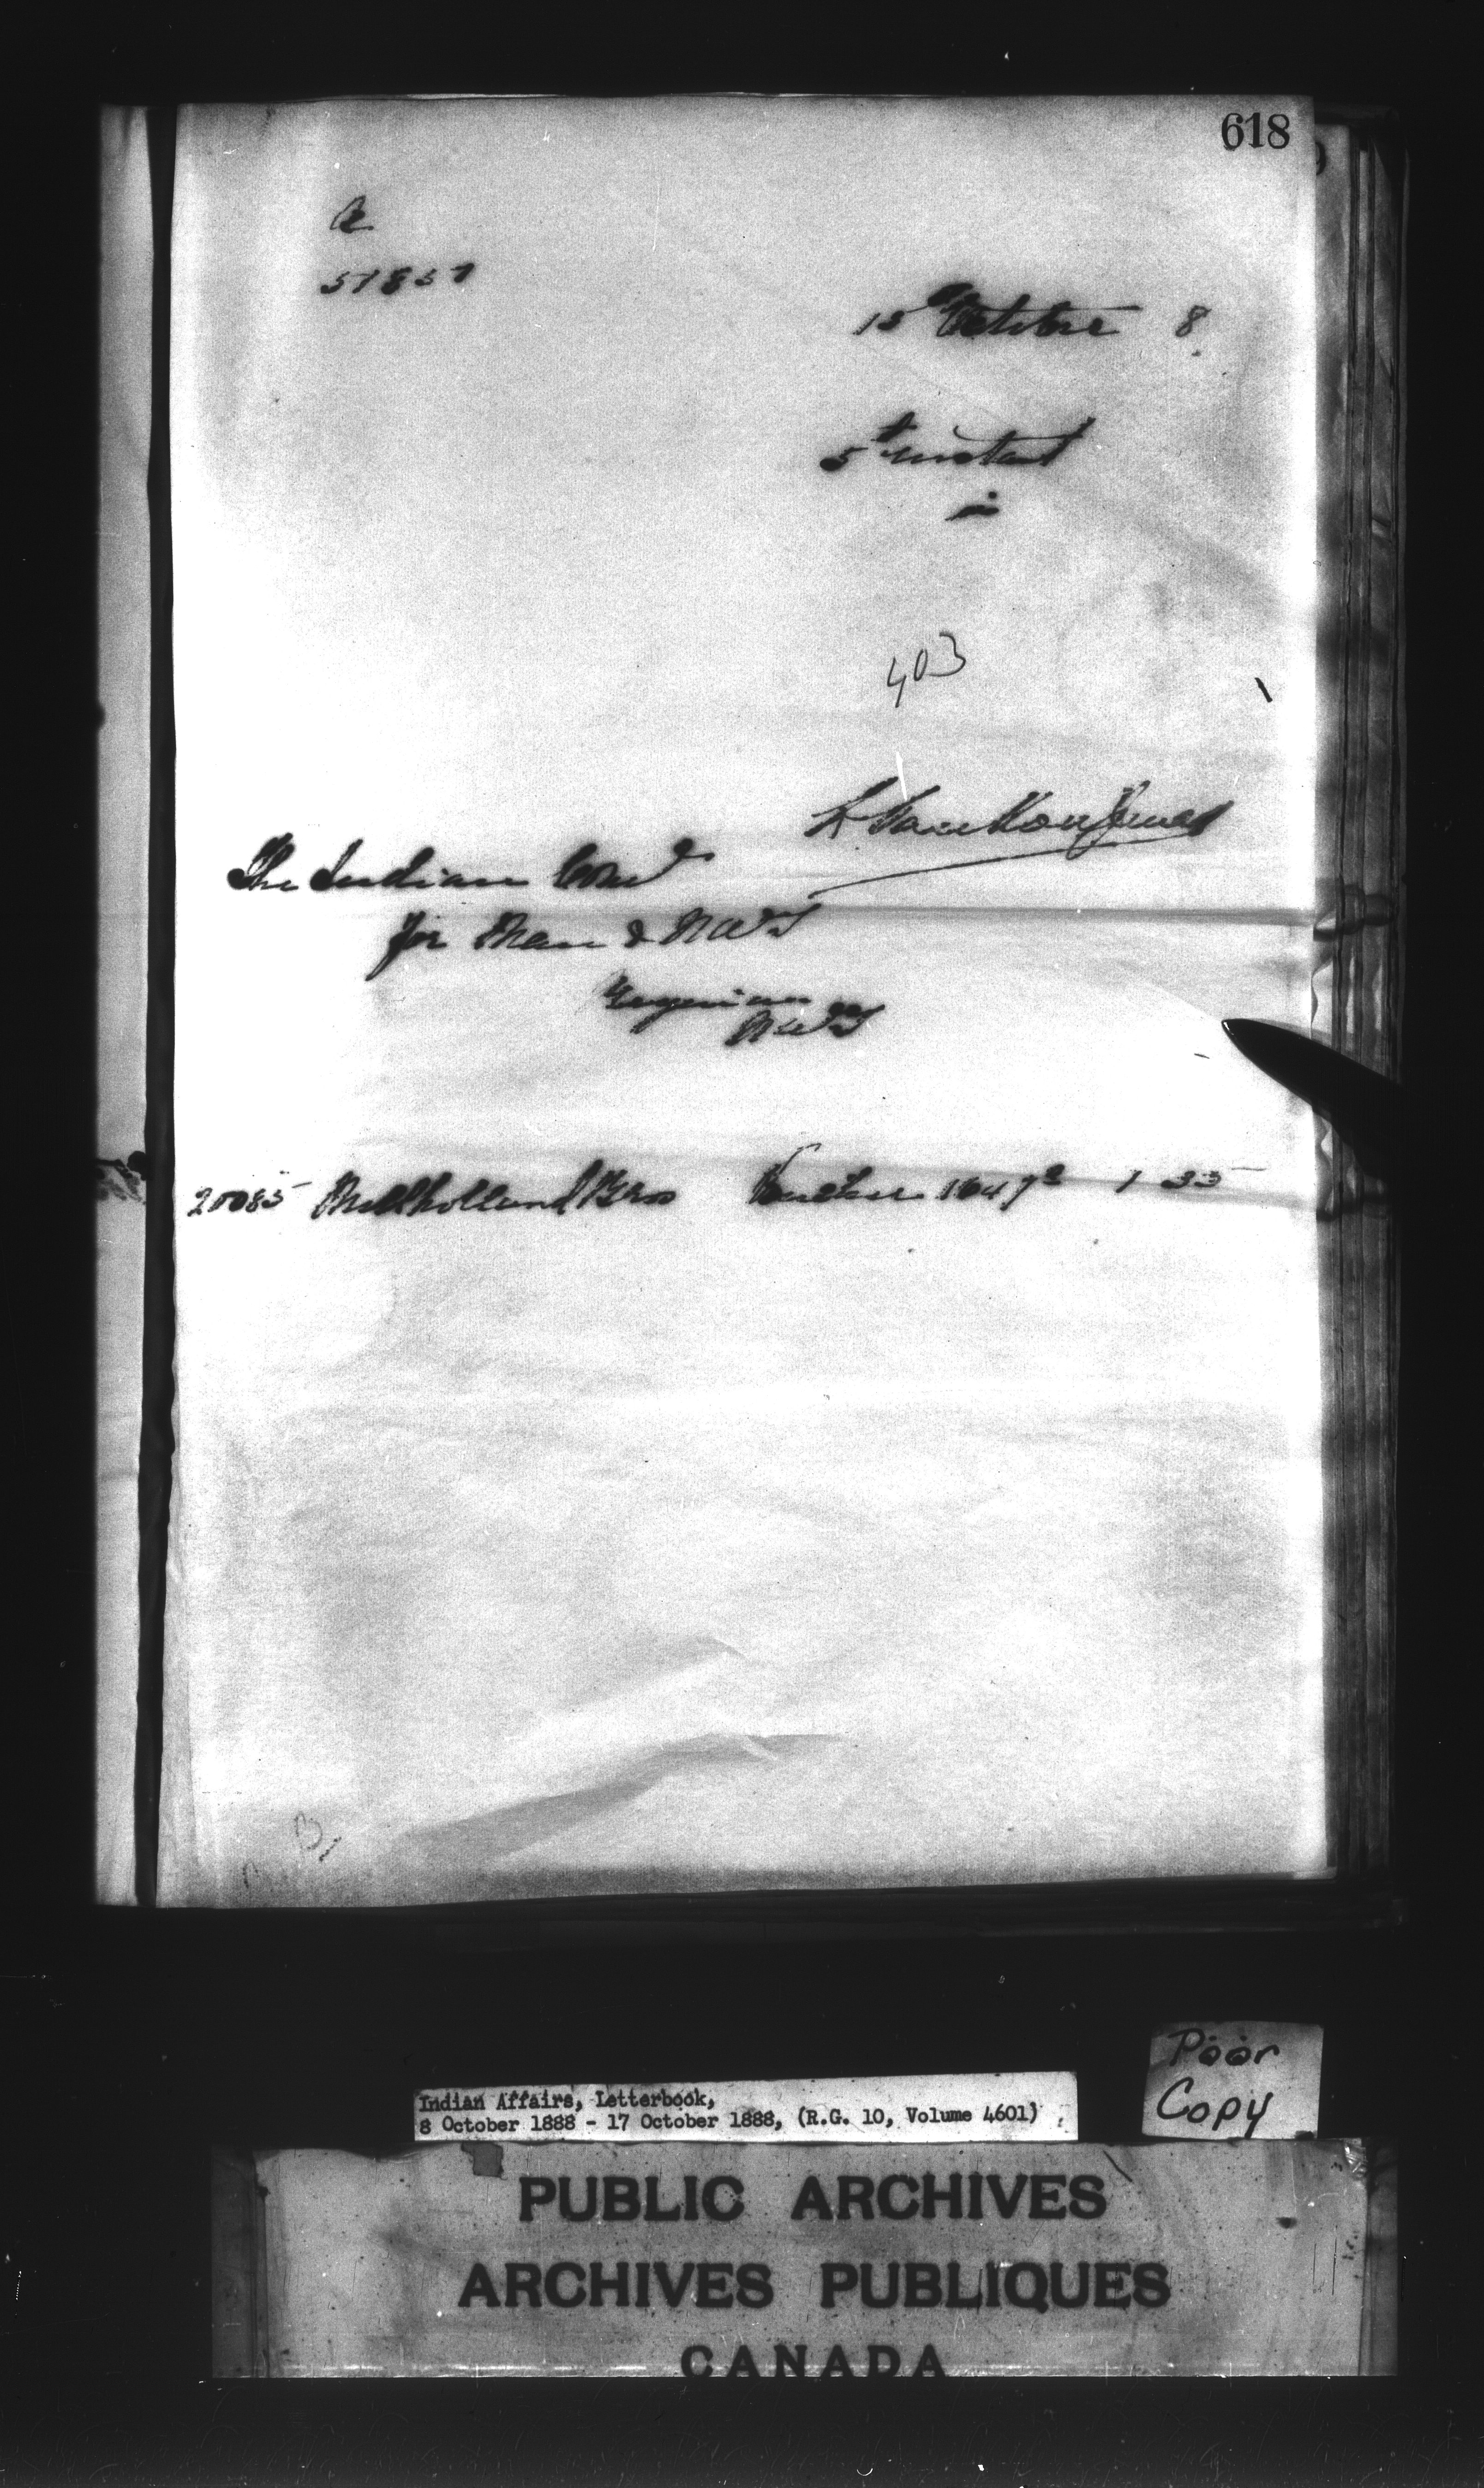 618
51857
15 October 8
5th instant
403
The Indian Com
for Man & NWT
NWT
20085 Mulholland Bros Voucher 1647 1 35
Poor
Copy
Indian Affairs, Letterbook,
8 October 1888 - 17 October 1888, (R.G. 10, Volume 4601)
PUBLIC ARCHIVES
ARCHIVES PUBLIQUES
CANADA